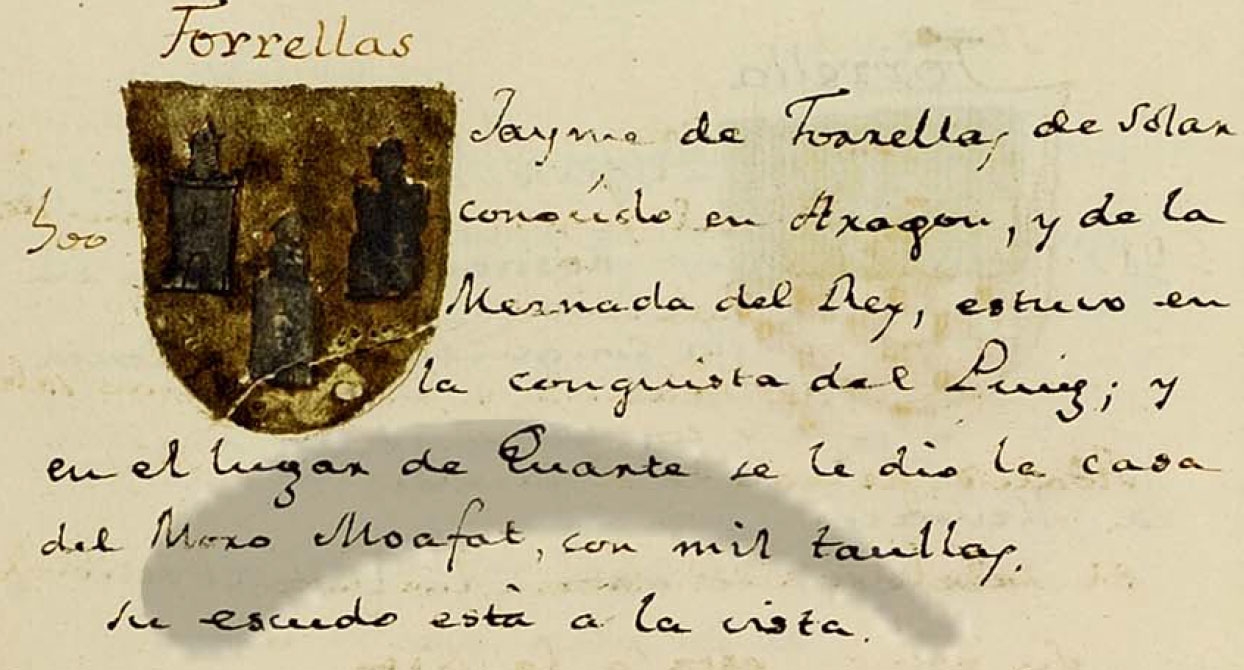 Torrellas
Jayme de Torrellas de Solar
500
conocido en Aragon, y de la
Mesnada del Rey, estuvo en
la conquista del Puig; y
en el lugar de Quarte se le dio la casa
del Moro Moafat, con mil taullas.
su escudo està a la vista.